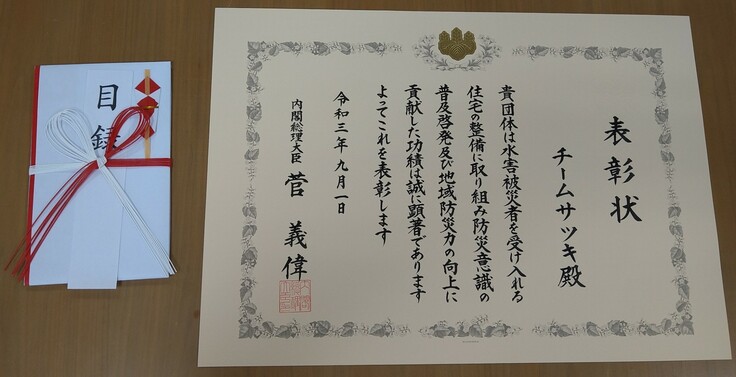 表彰状
チームサツキ殿
貴団体は水害被災者を受け入れる
住宅の整備に取り組み防災意識の
普及啓発及び地域防災力の向上に
貢献した功績は誠に顕著であります
よってこれを表彰します
令和三年九月一日
内閣総理大臣 菅 義偉
目録